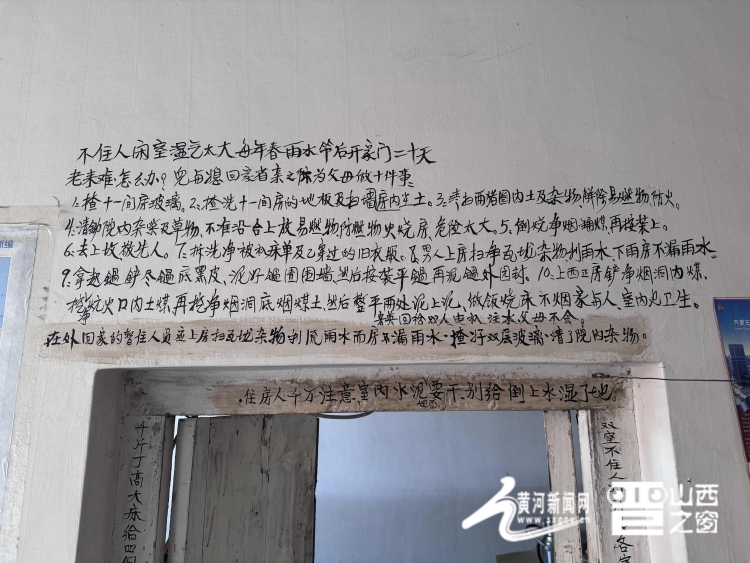 不住人闲室湿气太大每年春雨水节后开家门二十天
老来难怎么办?儿每媳回家省亲之际为父母做十件事
1.擦十一间房玻璃。2.擦洗十一间房的地板及扫墙房内尘土。3.清扫两猪圈内土及杂物解除易燃物防火。
4.清锄院内杂柴及草物不准沿台上放易燃物防燃物火烧房,危险太大。5.倒烧净烟漏煤,再按装上。
6.去上坟敬先人。7.拆洗净被扒床单及2穿过的旧衣服。8.男人上房扫净瓦地杂物利雨水,下雨房不漏雨水。
9.拿起锅铲尽锅底黑皮,泥好锅圈围墙,然后按装平锅再泥锅外围封。10.上西正房铲净烟洞内煤,
挖火口内土煤再挖净烟洞底烟煤土,然后整平两处泥上泥,做饭烧床不烟家与人,室内也卫生。
回给双人电机注水父母不会。
在外回家的暂住人员应上房扫瓦地杂物利流雨水而房不漏雨水.擦好双层玻璃.清了院内杂物。
.住房人千万注意室内水泥要干,别给倒上水湿了地.
千片丁高大床给四
双室不住人
各
黄河新闻网
www.sxgov.cn
山西之窗